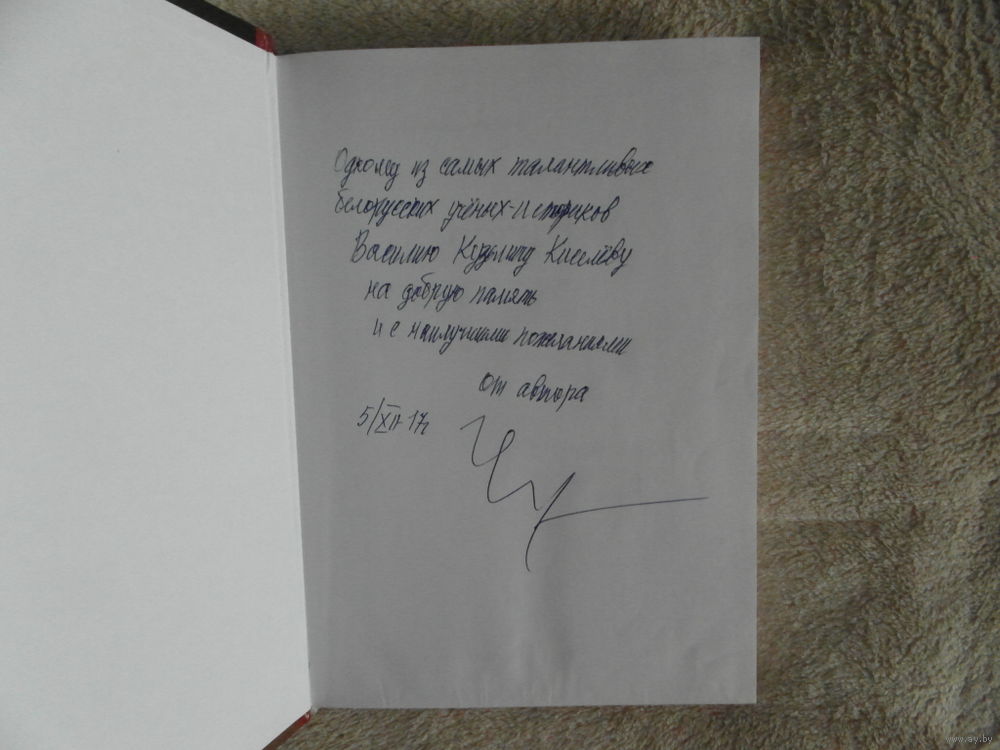 Одному из самых талантливых
белорусских учёных-историков
Василию Кузьмичу Киселёву
на добрую память
и с наилучшими пожеланиями
от автора
5/XII 17г
www.ay.by